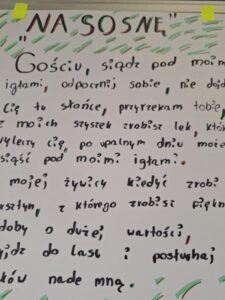 "NA SOSNĘ"
Gościu, siądz pod moim
igłami, odpocznij sobie, nie dojd
Cię tu słońce, przyrzekam tobie,
z moich szyszek zrobisz lek, któr
wyleczy cię, po upalnym dniu może
siąść pod moimi igłami.
mojej żywicy kiedyć zrobi
ursztyn, z którego zrobisz piękn
doby o dużej wartości,
jdz do lasu i posłuchaj
ków nade mną.